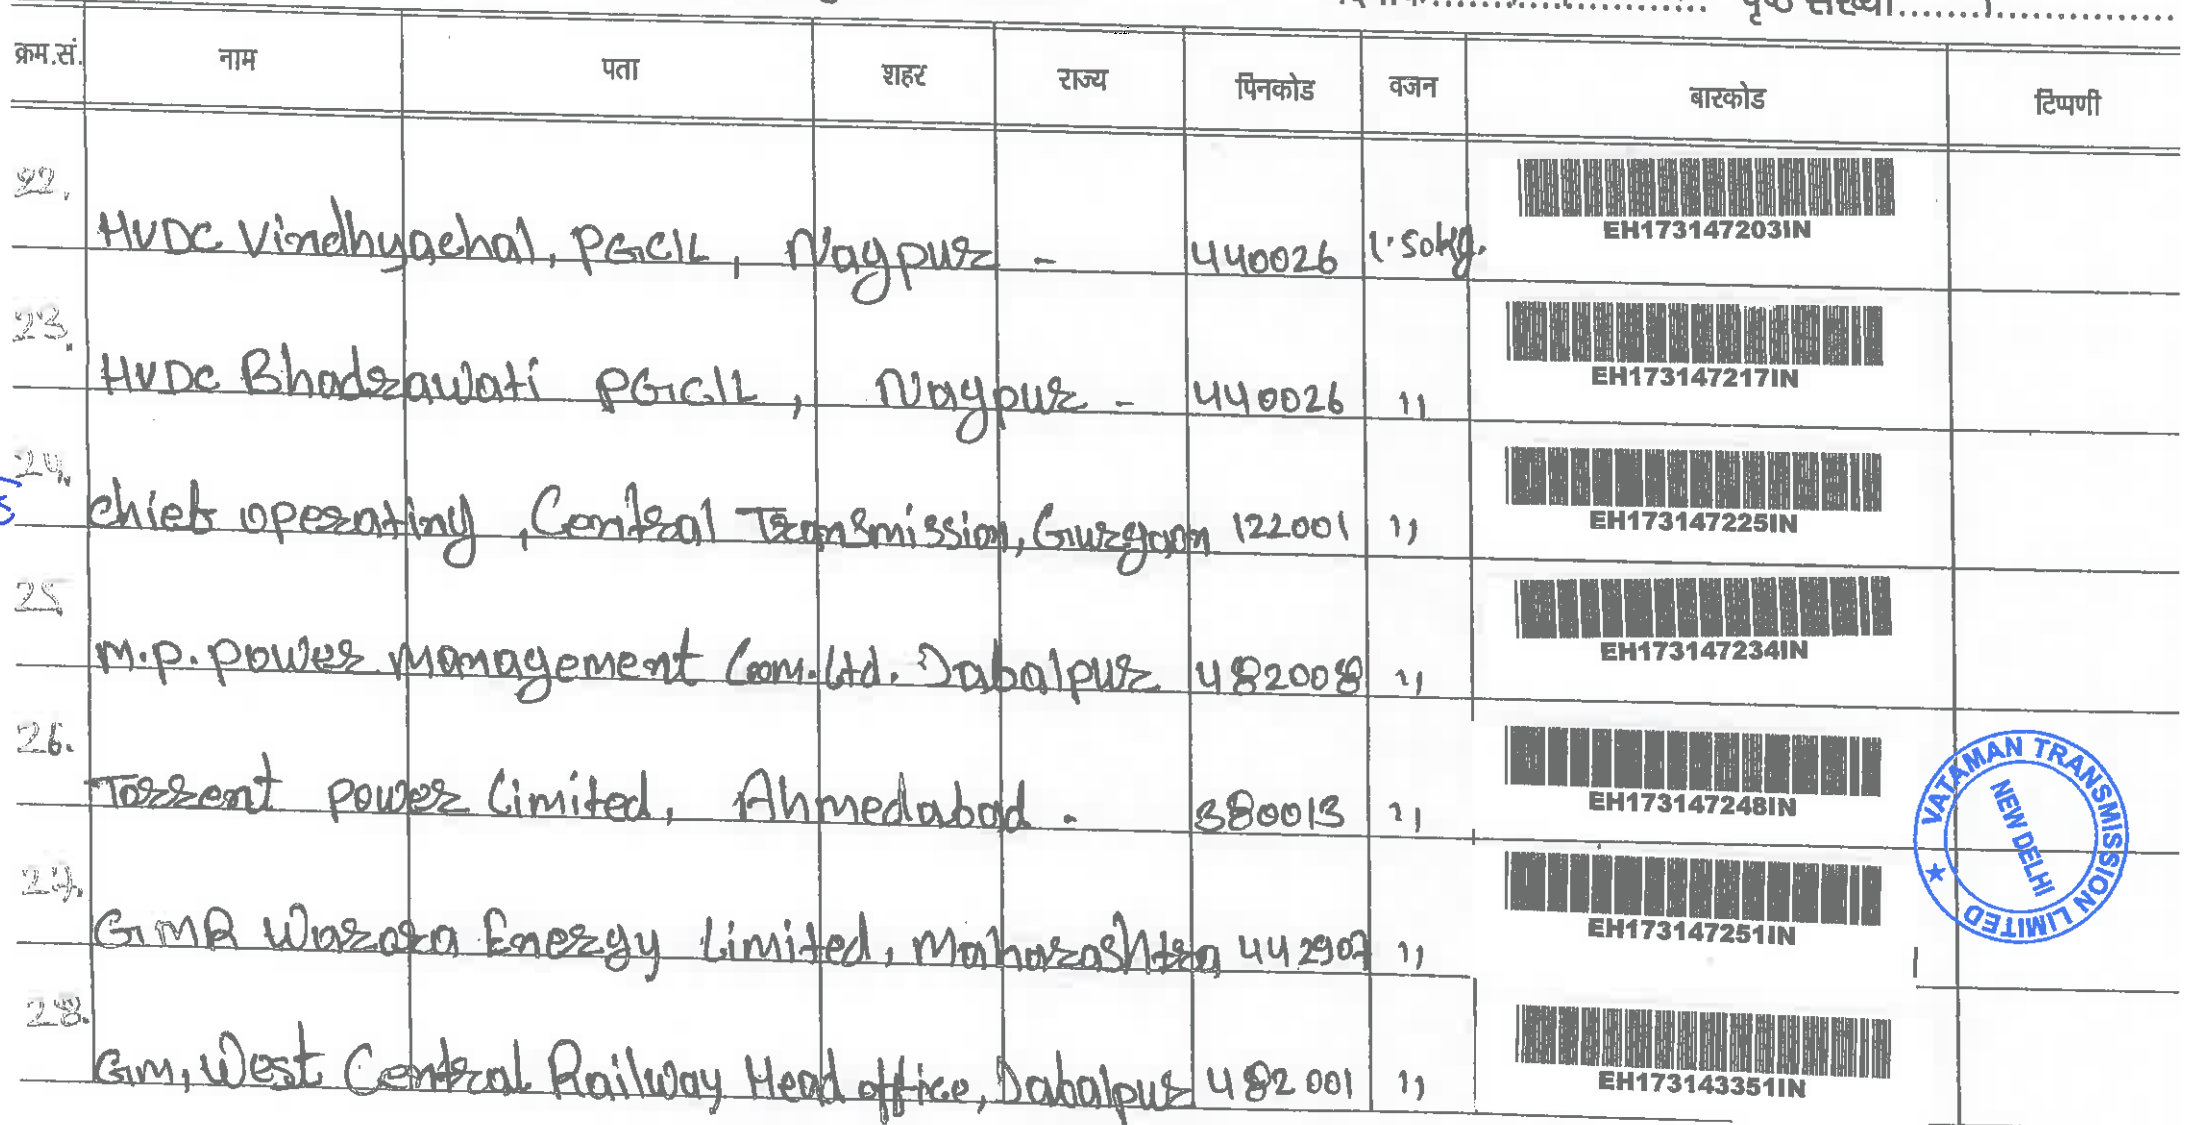 दिनांक.................... पृष्ठ संख्या....................
क्रम.सं. नाम पता शहर राज्य पिनकोड वजन बारकोड टिप्पणी
22. HVDC Vindhyachal, PGCIL, Nagpur - 440026 1.50Kg. EH173147203IN
23. HVDC Bhadrawati PGCIL, Nagpur - 440026 ,, EH173147217IN
24. Chief operating, Central Transmission, Gurgaon 122001 ,, EH173147225IN
25 M.P. Power Management Com. Ltd. Jabalpur 482008 ,, EH173147234IN
26. Torrent Power Limited, Ahmedabad. 380013 ,, EH173147248IN
27. GMR Warora Energy Limited, Maharashtra 442907 ,, EH173147251IN
28. GM, West Central Railway Head office, Jabalpur 482001 ,, EH173143351IN
VATAMAN TRANSMISSION LIMITED ★
NEW DELHI